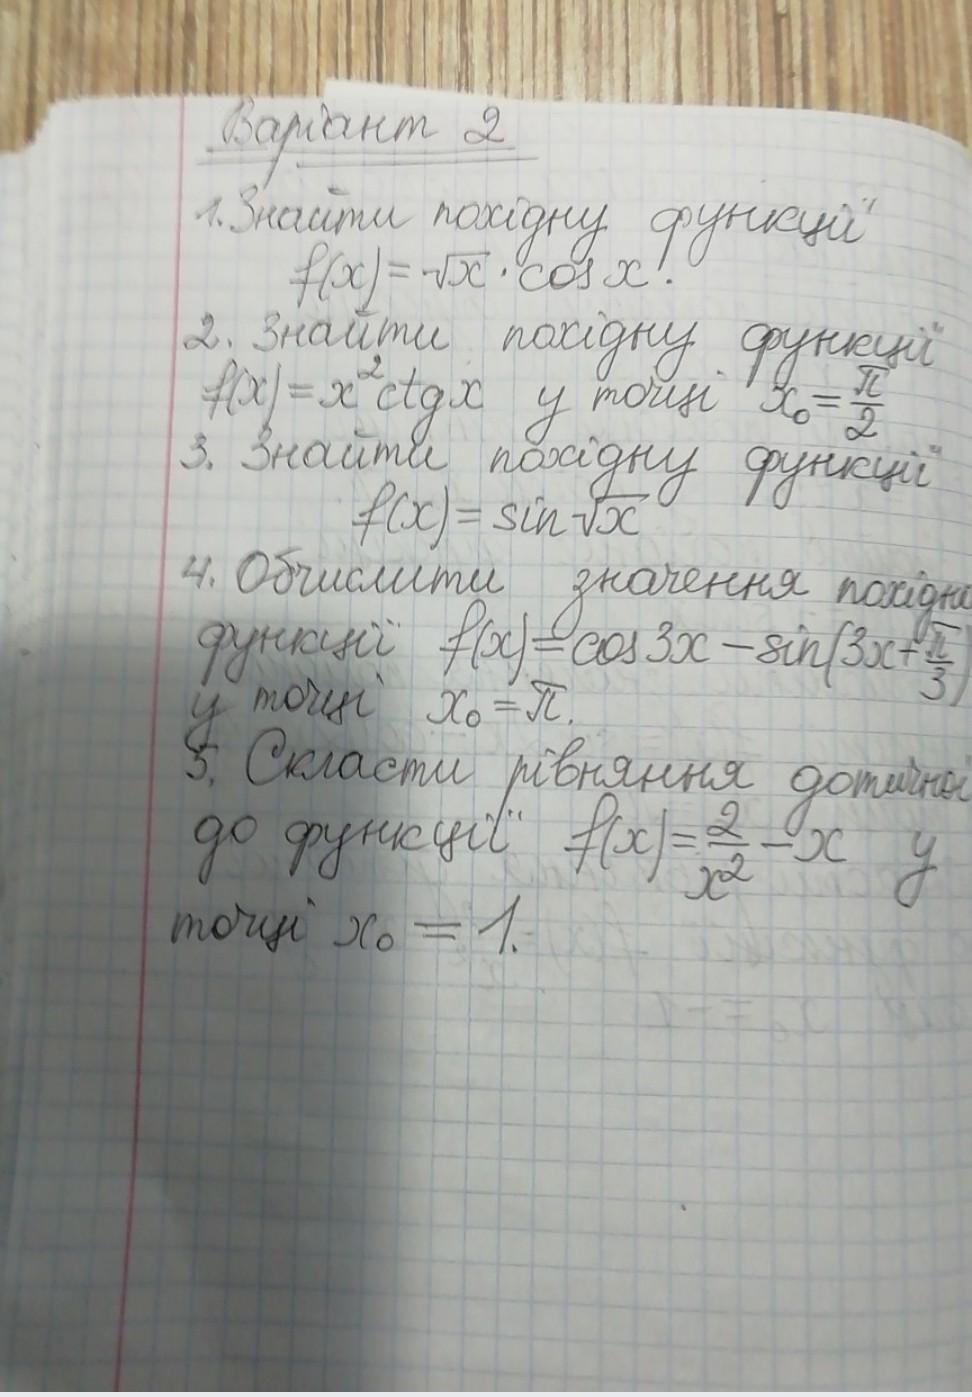 Варіант 2
1. Знайти похідну функції
f(x) = √x · cos x.
2. Знайти похідну функції
f(x) = x² ctg x у точці x₀ = π/2
3. Знайти похідну функції
f(x) = sin √x
4. Обчислити значення похідни
функції f(x) = cos 3x − sin(3x + π/3)
у точці x₀ = π.
5. Скласти рівняння дотичної
до функції f(x) = 2/x² − x у
точці x₀ = 1.